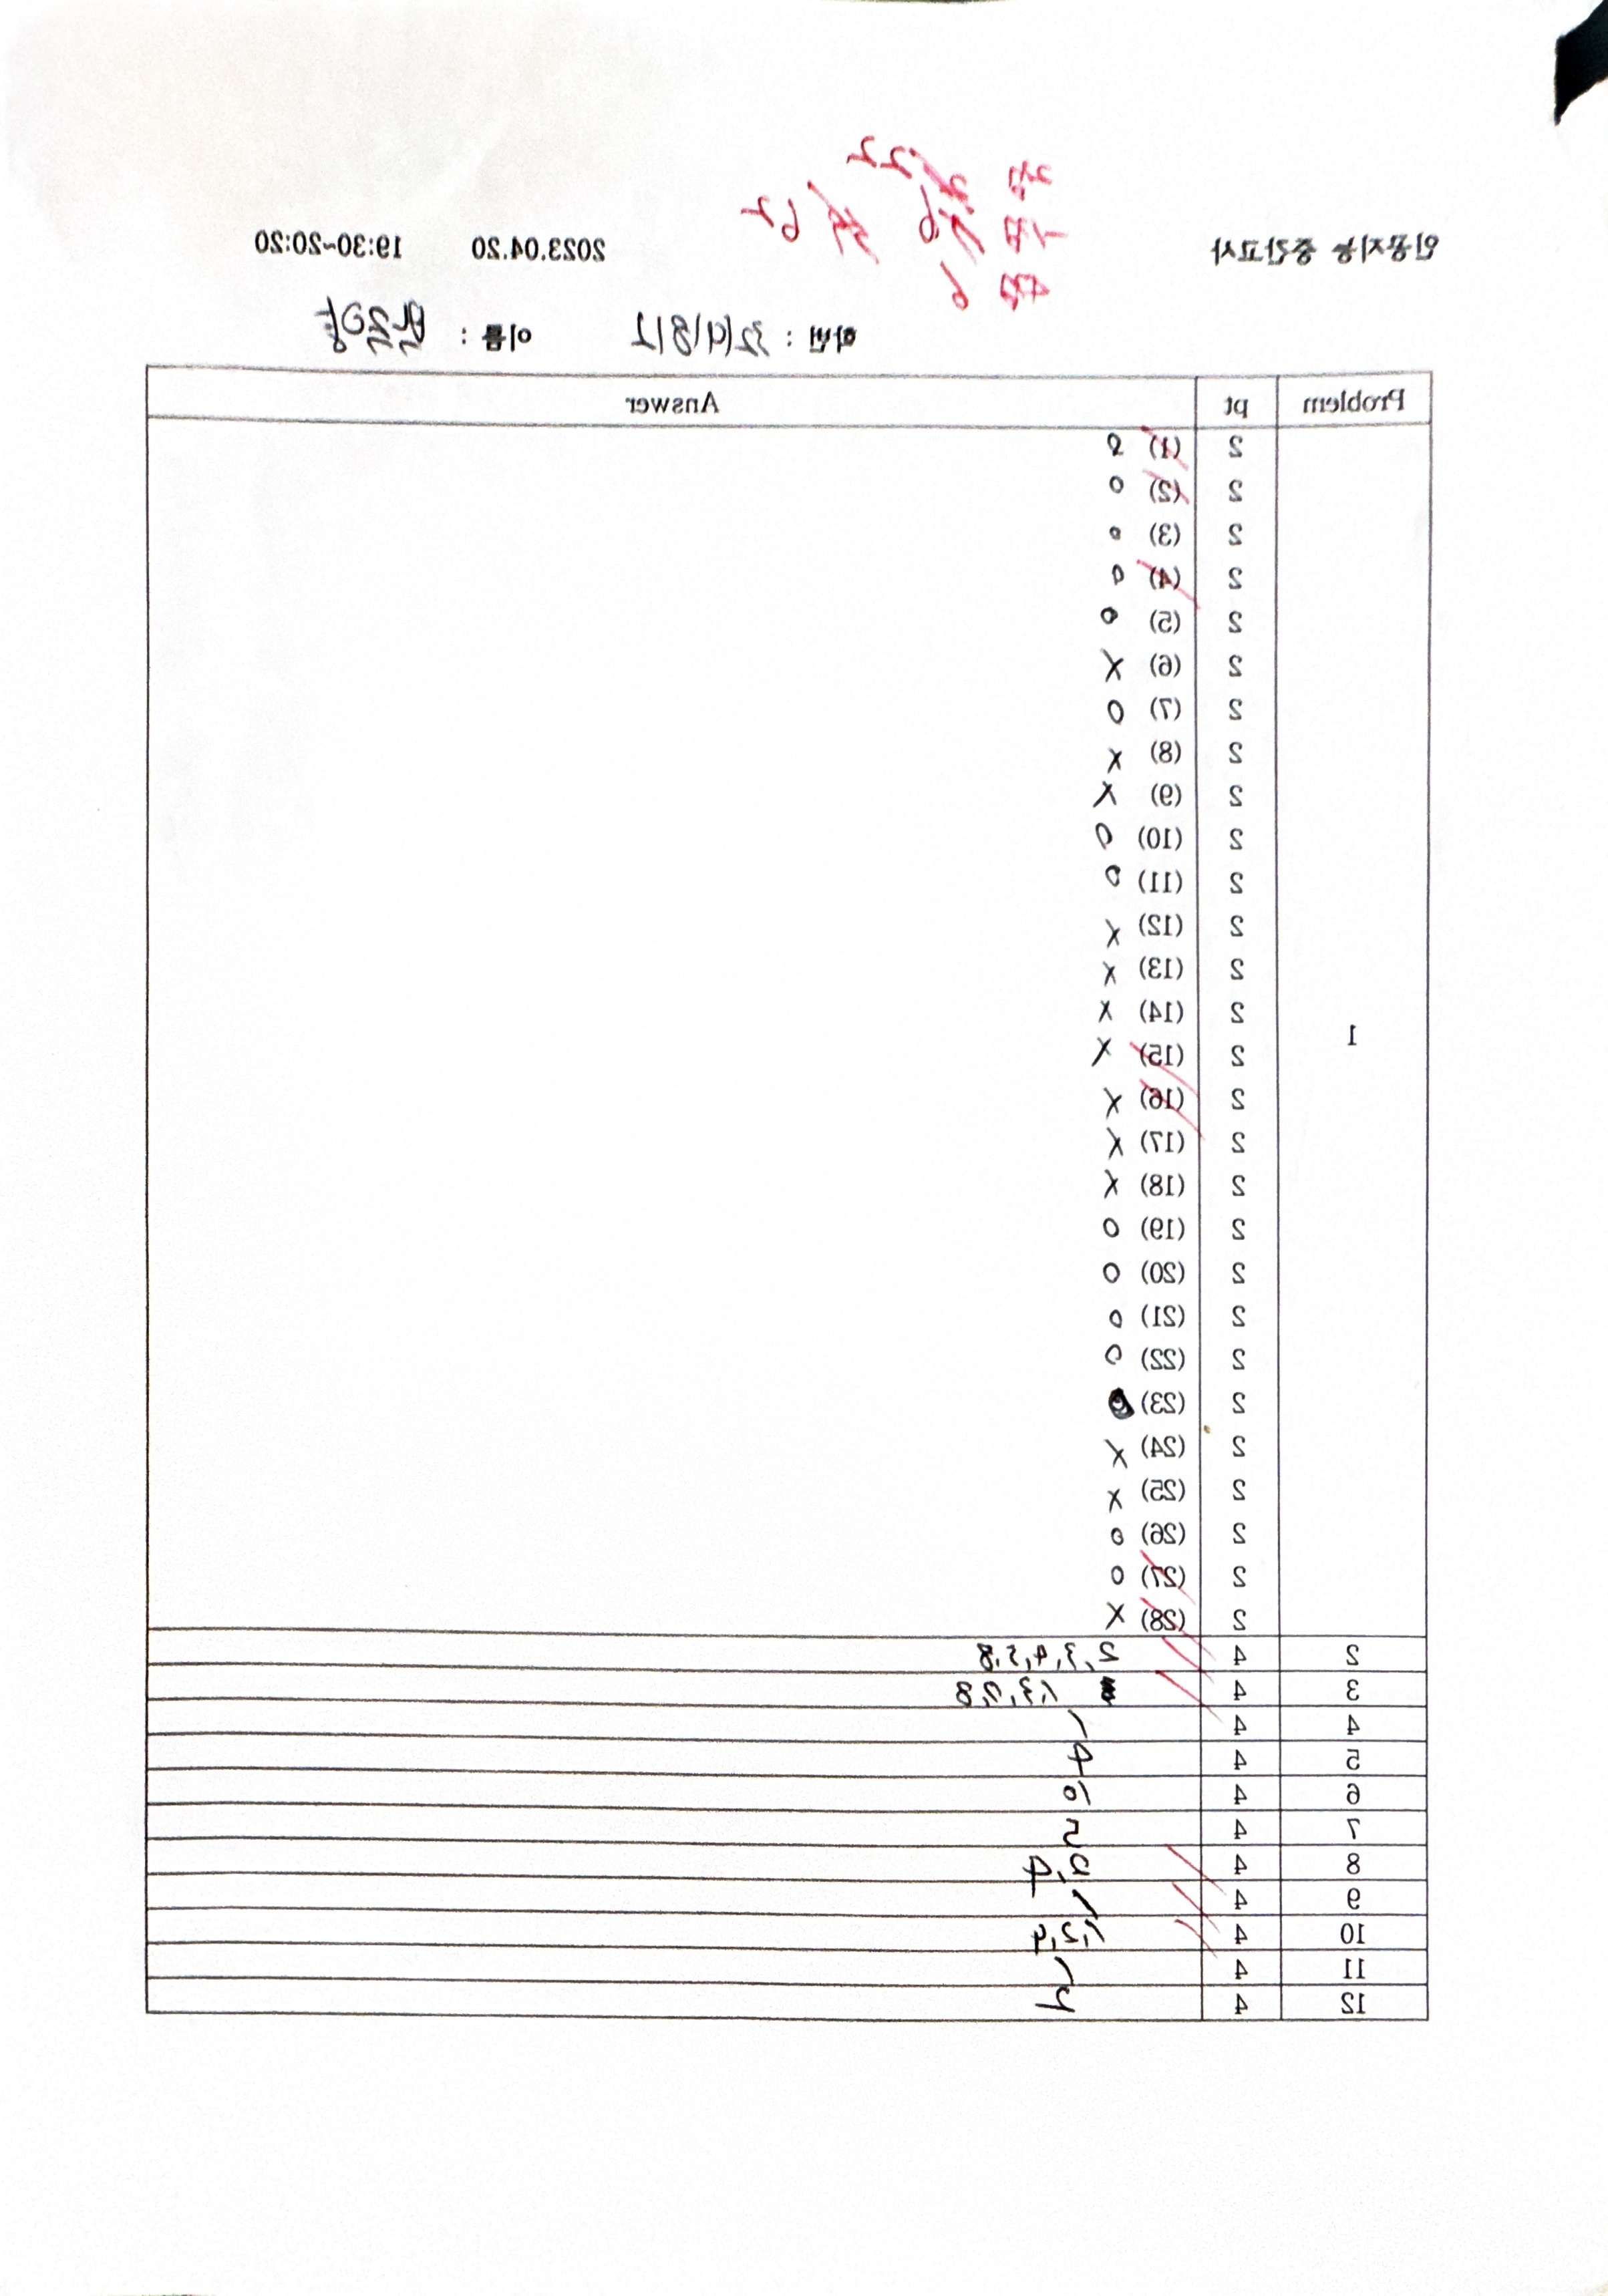 인공지능 중간고사 2023.04.20 19:30~20:20
2점 22
1점 62
4점 6
학번 : 이름 :
Problem pt Answer
1
2 (1) O
2 (2) O
2 (3) O
2 (4) O
2 (5) O
2 (6) X
2 (7) O
2 (8) X
2 (9) X
2 (10) O
2 (11) O
2 (12) X
2 (13) X
2 (14) X
2 (15) X
2 (16) X
2 (17) X
2 (18) X
2 (19) O
2 (20) O
2 (21) O
2 (22) O
2 (23) O
2 (24) X
2 (25) X
2 (26) O
2 (27) O
2 (28) X
2 4 2,3,4,5,8
3 4
4 4 1
5 4 4
6 4 10
7 4 5
8 4 2,4
9 4 1
10 4
11 4 1
12 4 4